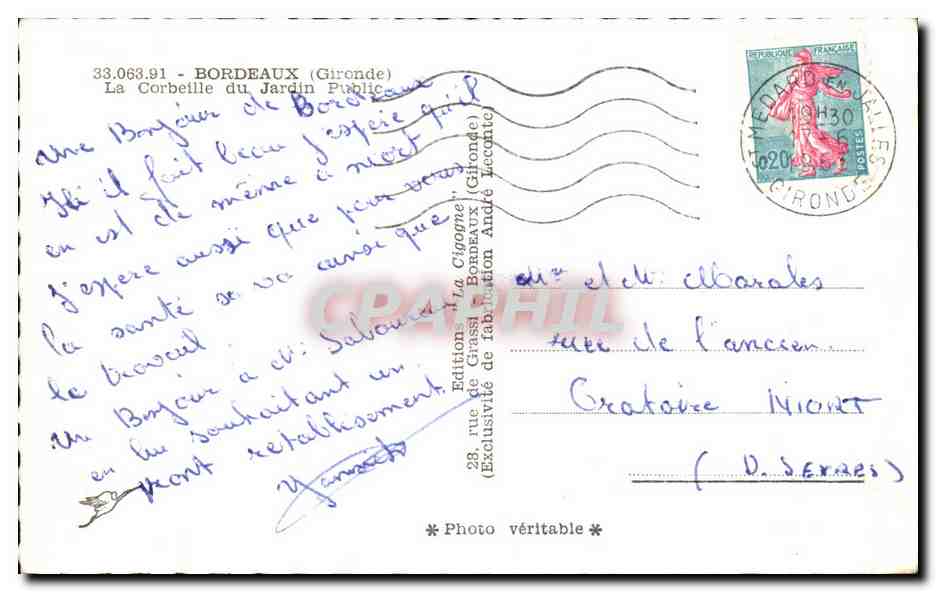 33.063.91 - BORDEAUX (Gironde)
La Corbeille du Jardin Public
Une Bonjour de Bordeaux
il fait beau j'espère qu'il
en est de même à niort
j'espere aussi que pour vous
la santé sa va ainsi que
le travail.
un Bonjour à Mr
en lui souhaitant un
pront retablissement
Editions "La Cigogne"
28, rue de Grassi, BORDEAUX (Gironde)
(Exclusivité de fabrication André Leconte)
REPUBLIQUE FRANÇAISE
0,20
POSTES
ST MEDARD EN JALLES
19H30
GIRONDE
et Mr Morales
rue de l'ancien
Oratoire NIORT
(D. SEVRES)
* Photo véritable *
CPAPHIL